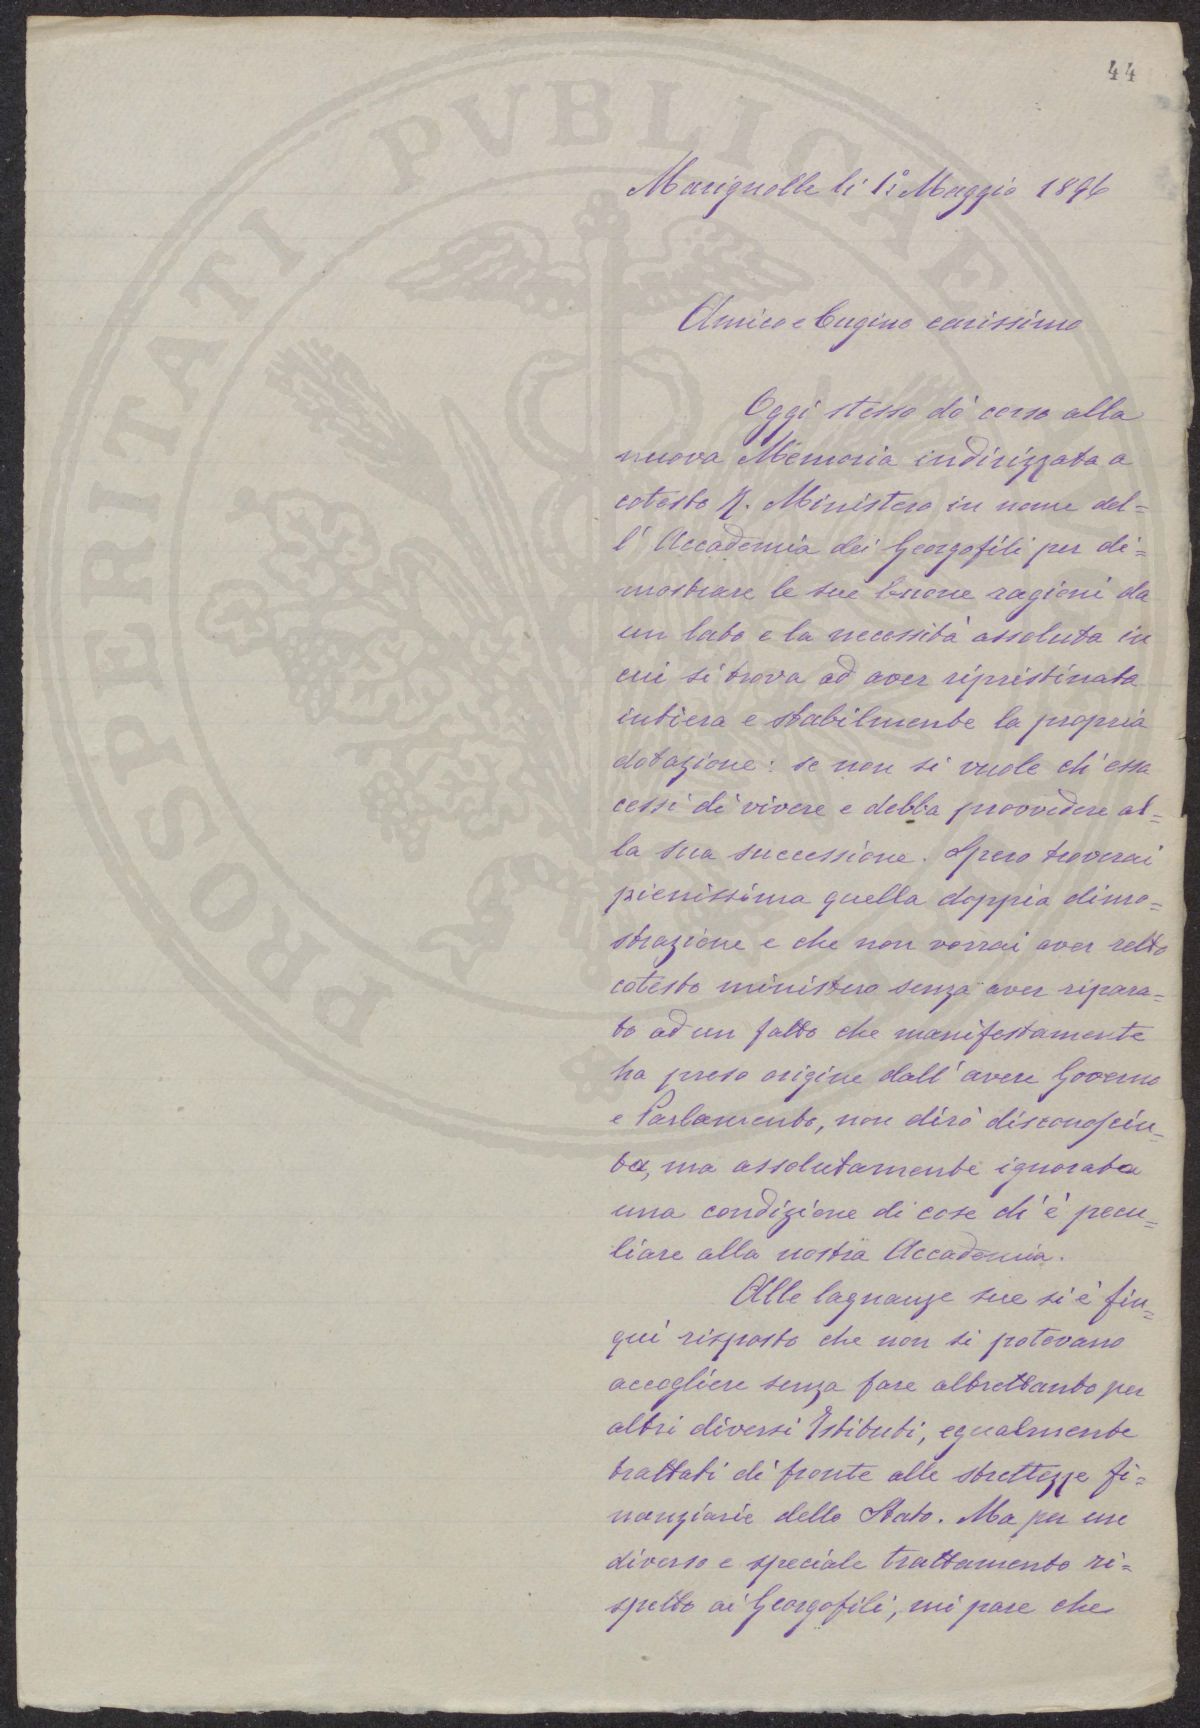 44
Marignolle li 1º Maggio 1896
Amico e Cugino carissimo
Oggi stesso dò corso alla
nuova Memoria indirizzata a
cotesto R. Ministero in nome del=
l'Accademia dei Georgofili per di=
mostrare le sue buone ragioni da
un lato e la necessità assoluta in
cui si trova ad aver ripristinata
intiera e stabilmente la propria
dotazione: se non si vuole ch'essa
cessi di vivere e debba provvedere al=
la sua successione. Spero troverai
pienissima quella doppia dimo=
strazione e che non vorrai aver retto
cotesto ministero senza aver ripara=
to ad un fatto che manifestamente
ha preso origine dall'avere Governo
e Parlamento, non dirò disconosciu=
ta, ma assolutamente ignorata
una condizione di cose ch'è pecu=
liare alla nostra Accademia.
Alle lagnanze sue si è fin=
quì risposto che non si potevano
accogliere senza fare altrettanto per
altri diversi Istituti, egualmente
trattati di fronte alle strettezze fi=
nanziarie dello Stato. Ma per un
diverso e speciale trattamento ri=
spetto ai Georgofili, mi pare che
PROSPERITATI PVBLICAE